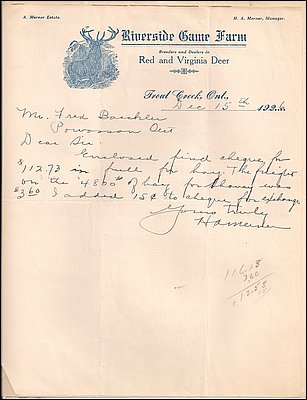 A. Marner Estate.
M. A. Marner, Manager.
Riverside Game Farm
Breeders and Dealers in
Red and Virginia Deer
Trout Creek, Ont.
Dec 15th 1926
Mr. Fred Baechler
Powassan Ont
Dear Sir:
Enclosed find cheque for
$112.73 in full for hay. The freight
on the 4800# of hay for was
$3.60 I added 15¢ to cheque for exchange
Yours Truly
116.18
360
112.58
15